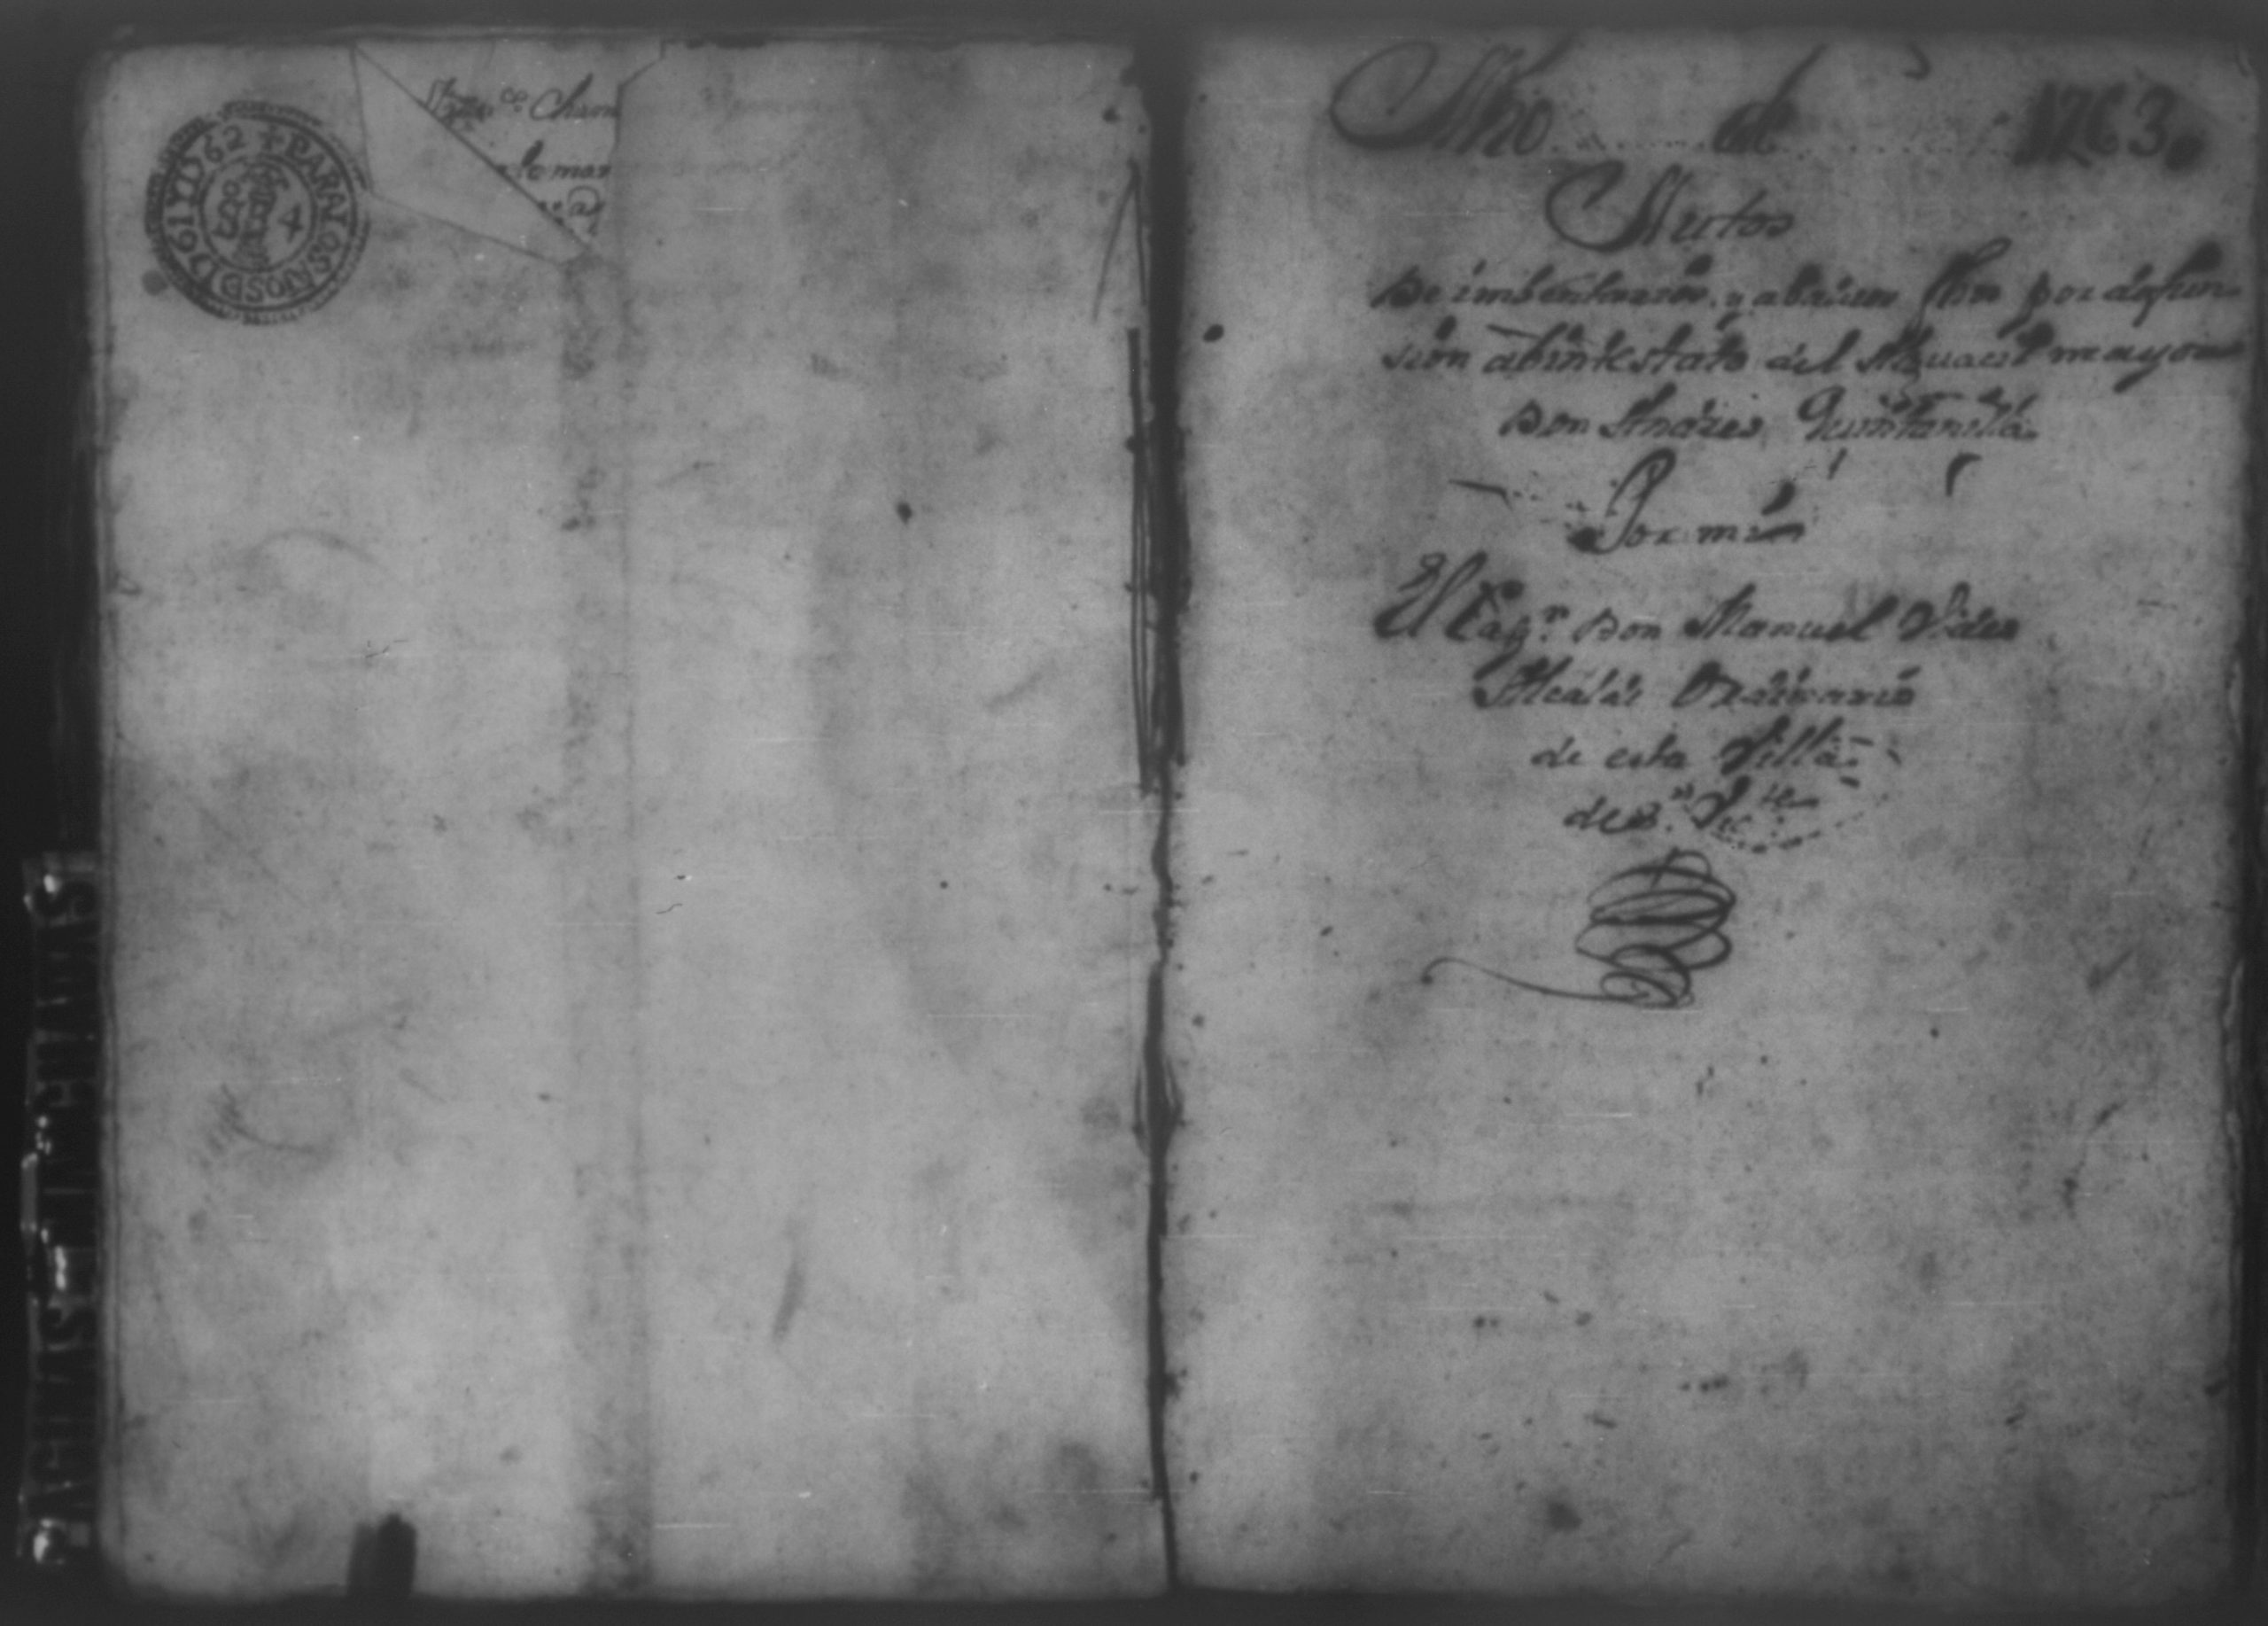 + PARA LOS AÑOS D 1761 Y 1762
SD 4
Franco Cham
to mar
Año de 1763.
Autos
De imbentarios, y abaluos fhõs por defun-
sion abintestato del Alguacil mayor
Don Andres Quintanilla
Por mi
El Capn. Don Manuel Vides
Alcalde Ordinario
de esta Villa
de Sn. Victe